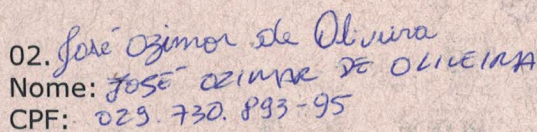 02. José Ozimar de Oliveira
Nome: JOSÉ OZIMAR DE OLIVEIRA
CPF: 029.730.893-95